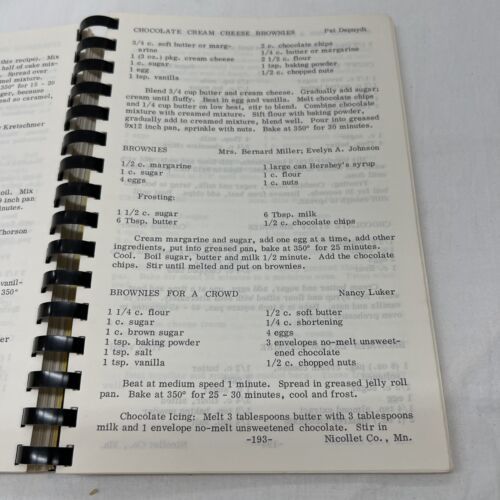 this recipe). Mix
half of cake mix-
Spread over
mel mixture.
350° for 15 - 20
ger, because
so caramel,
Kretschmer
oil. Mix
9 inch pan
inutes.
Thorson
vanil-
350°
CHOCOLATE CREAM CHEESE BROWNIES Pat Depuydt
3/4 c. soft butter or marg-
arine
1 (3 oz.) pkg. cream cheese
1 c. sugar
1 egg
1 tsp. vanilla
2 c. chocolate chips
1/4 c. butter or margarine
2 1/2 c. flour
1 tsp. baking powder
1/2 c. chopped nuts
Blend 3/4 cup butter and cream cheese. Gradually add sugar;
cream until fluffy. Beat in egg and vanilla. Melt chocolate chips
and 1/4 cup butter on low heat, stir to blend. Combine chocolate
mixture with creamed mixture. Sift flour with baking powder,
gradually add to creamed mixture, blend well. Pour into greased
9x12 inch pan, sprinkle with nuts. Bake at 350° for 30 minutes.
BROWNIES Mrs. Bernard Miller; Evelyn A. Johnson
1/2 c. margarine
1 c. sugar
4 eggs
1 large can Hershey's syrup
1 c. flour
1 c. nuts
Frosting:
1 1/2 c. sugar
6 Tbsp. butter
6 Tbsp. milk
1/2 c. chocolate chips
Cream margarine and sugar, add one egg at a time, add other
ingredients, put into greased pan, bake at 350° for 25 minutes.
Cool. Boil sugar, butter and milk 1/2 minute. Add the chocolate
chips. Stir until melted and put on brownies.
BROWNIES FOR A CROWD Nancy Luker
1 1/4 c. flour
1 c. sugar
1 c. brown sugar
1 tsp. baking powder
1 tsp. salt
1 tsp. vanilla
1/2 c. soft butter
1/4 c. shortening
4 eggs
3 envelopes no-melt unsweet-
ened chocolate
1/2 c. chopped nuts
Beat at medium speed 1 minute. Spread in greased jelly roll
pan. Bake at 350° for 25 - 30 minutes, cool and frost.
Chocolate Icing: Melt 3 tablespoons butter with 3 tablespoons
milk and 1 envelope no-melt unsweetened chocolate. Stir in
-193- Nicollet Co., Mn.